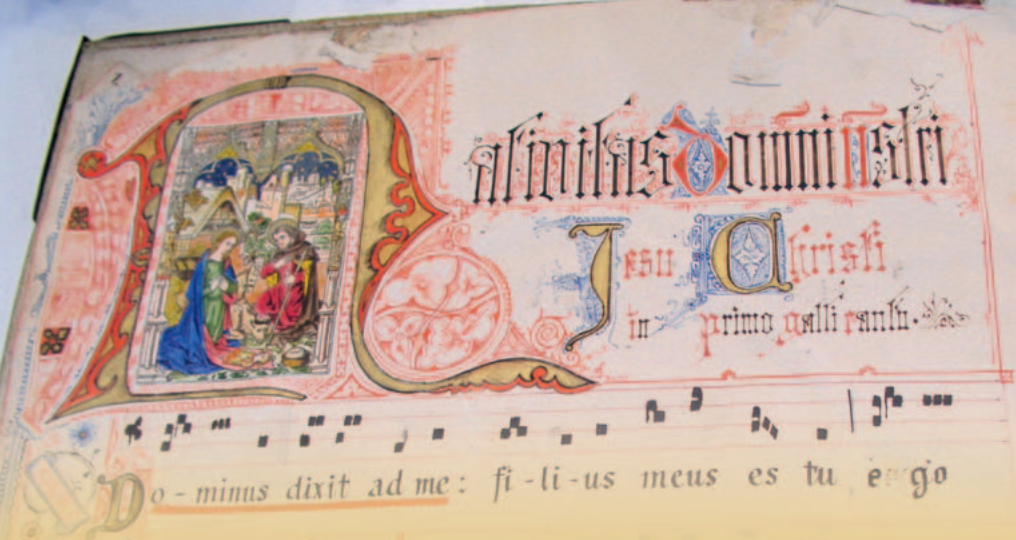 Nativitas Domini nstri
Jesu Christi
in primo galli cantu.
Do-minus dixit ad me: fi-li-us meus es tu ego